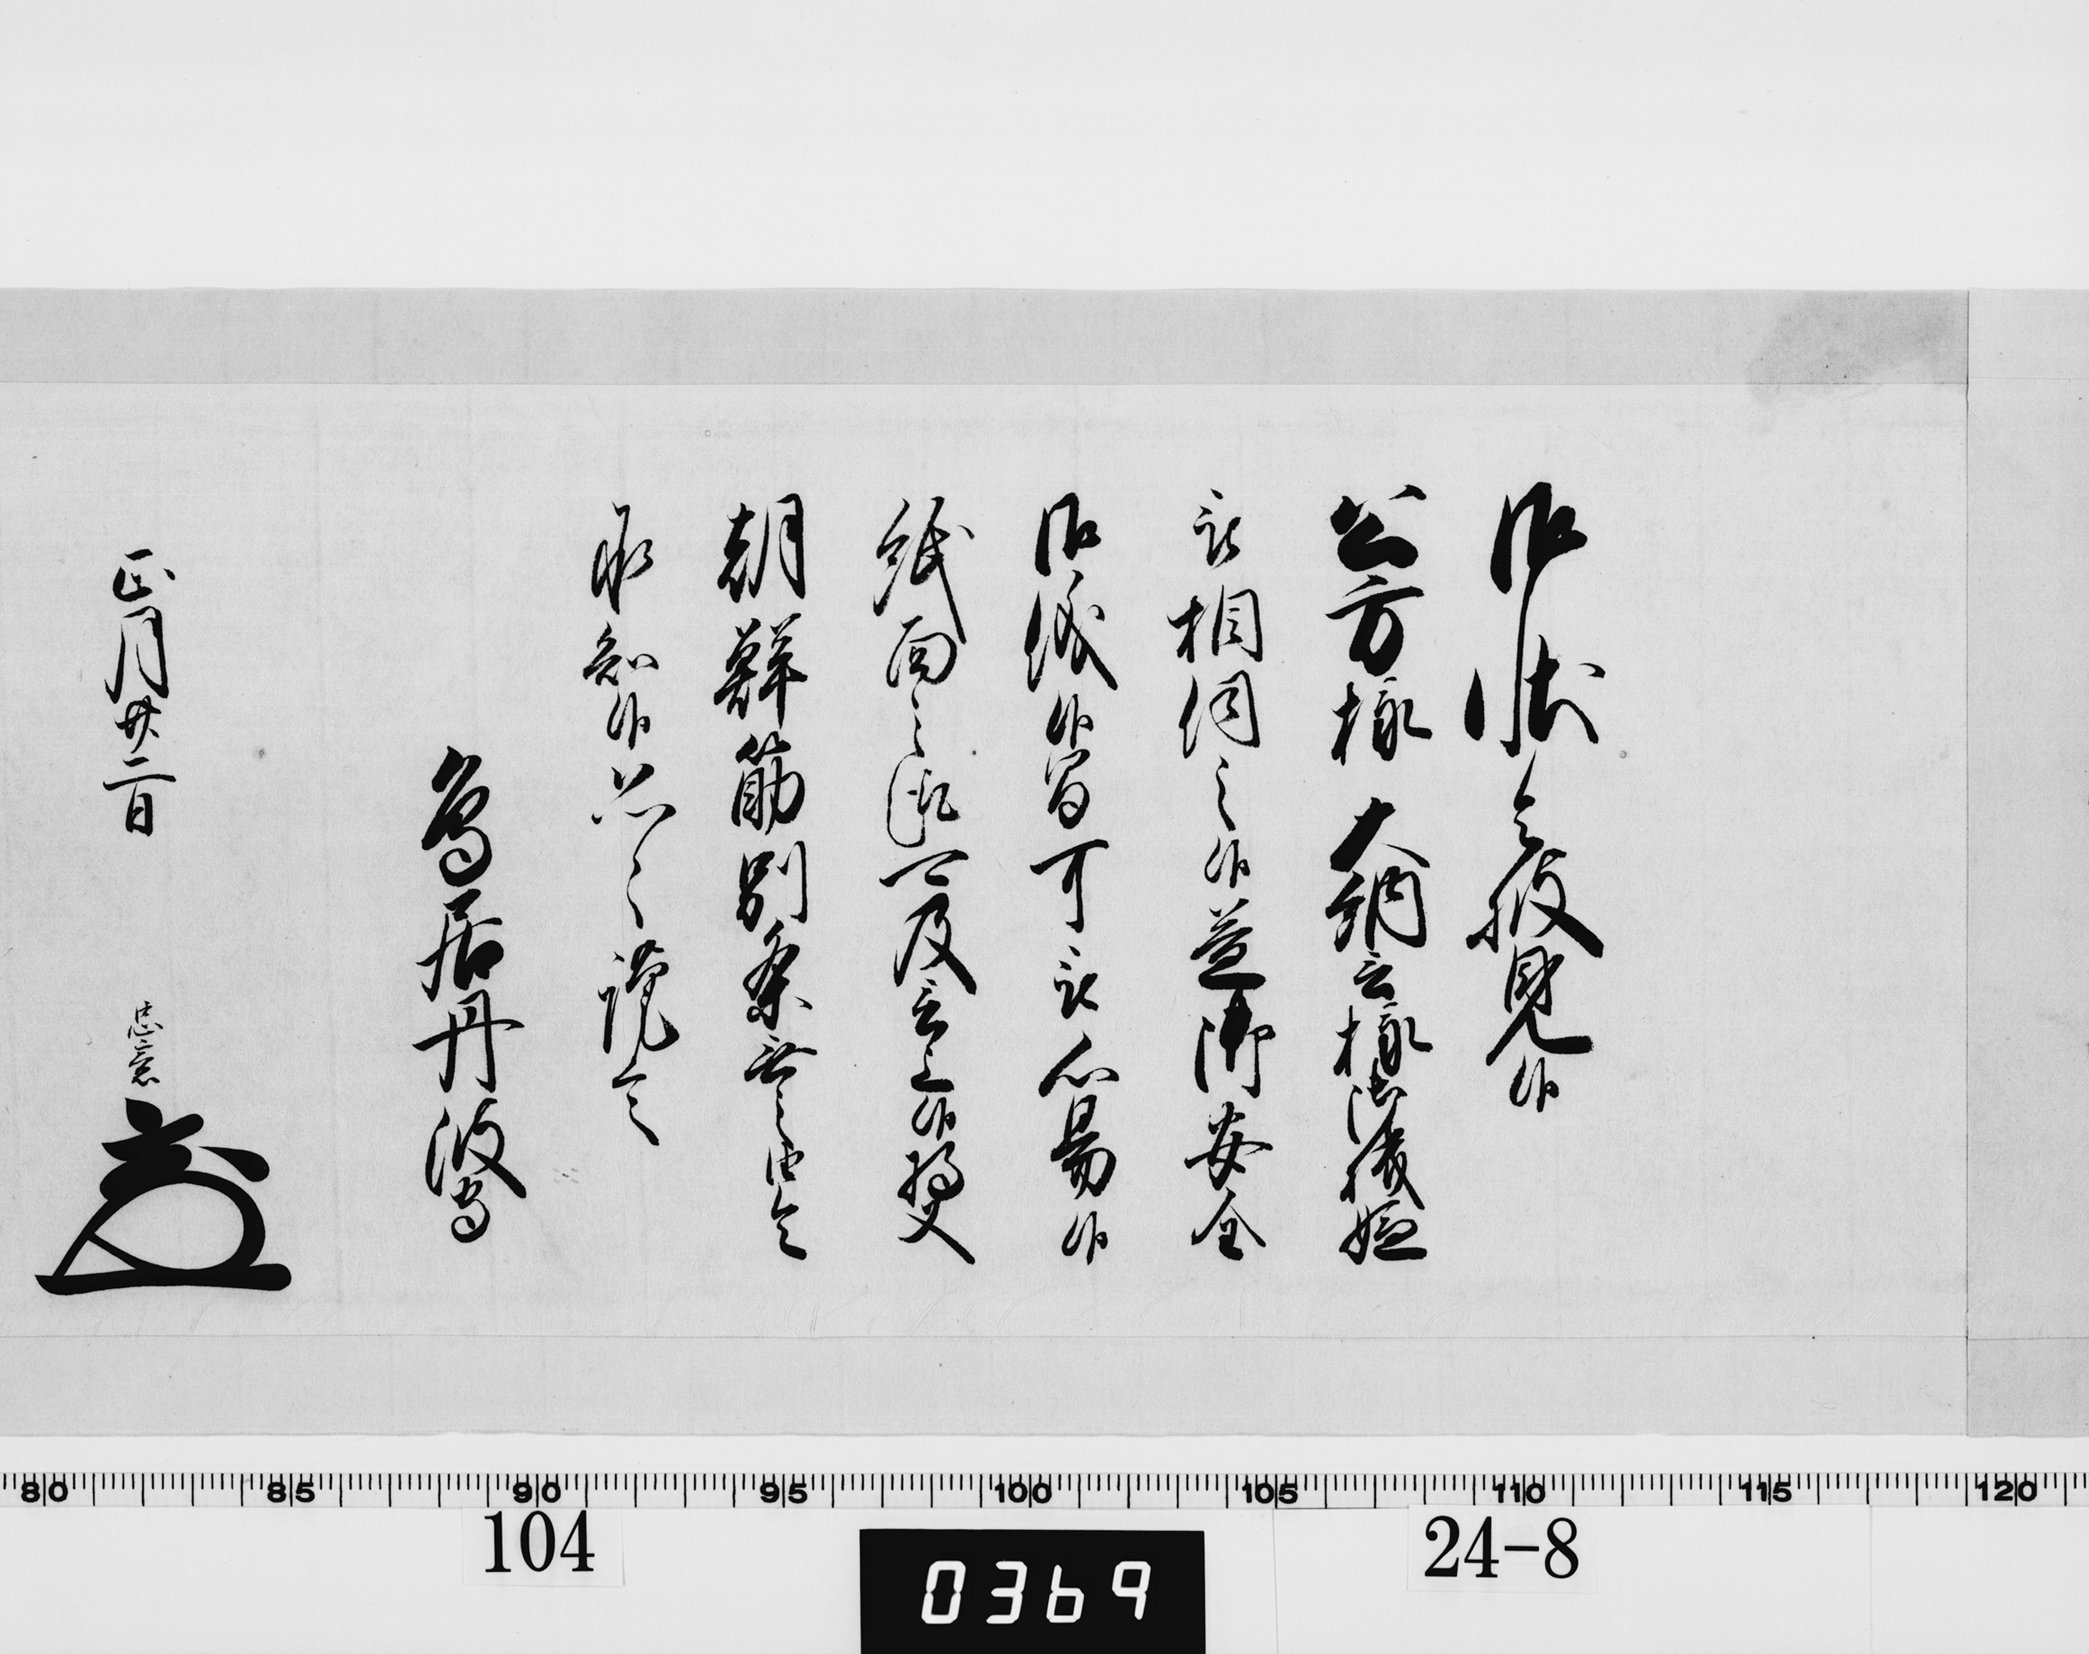 御状令披見候
公方様 大納言様御機嫌
被相伺之候益御安全
御儀候間可被心易候
紙面之趣可及言上候将又
朝鮮筋別条無之由令
承知候恐々謹言
鳥居丹波守
正月廿二日
忠意
80 85 90 95 100 105 110 115 120
104
0369
24-8